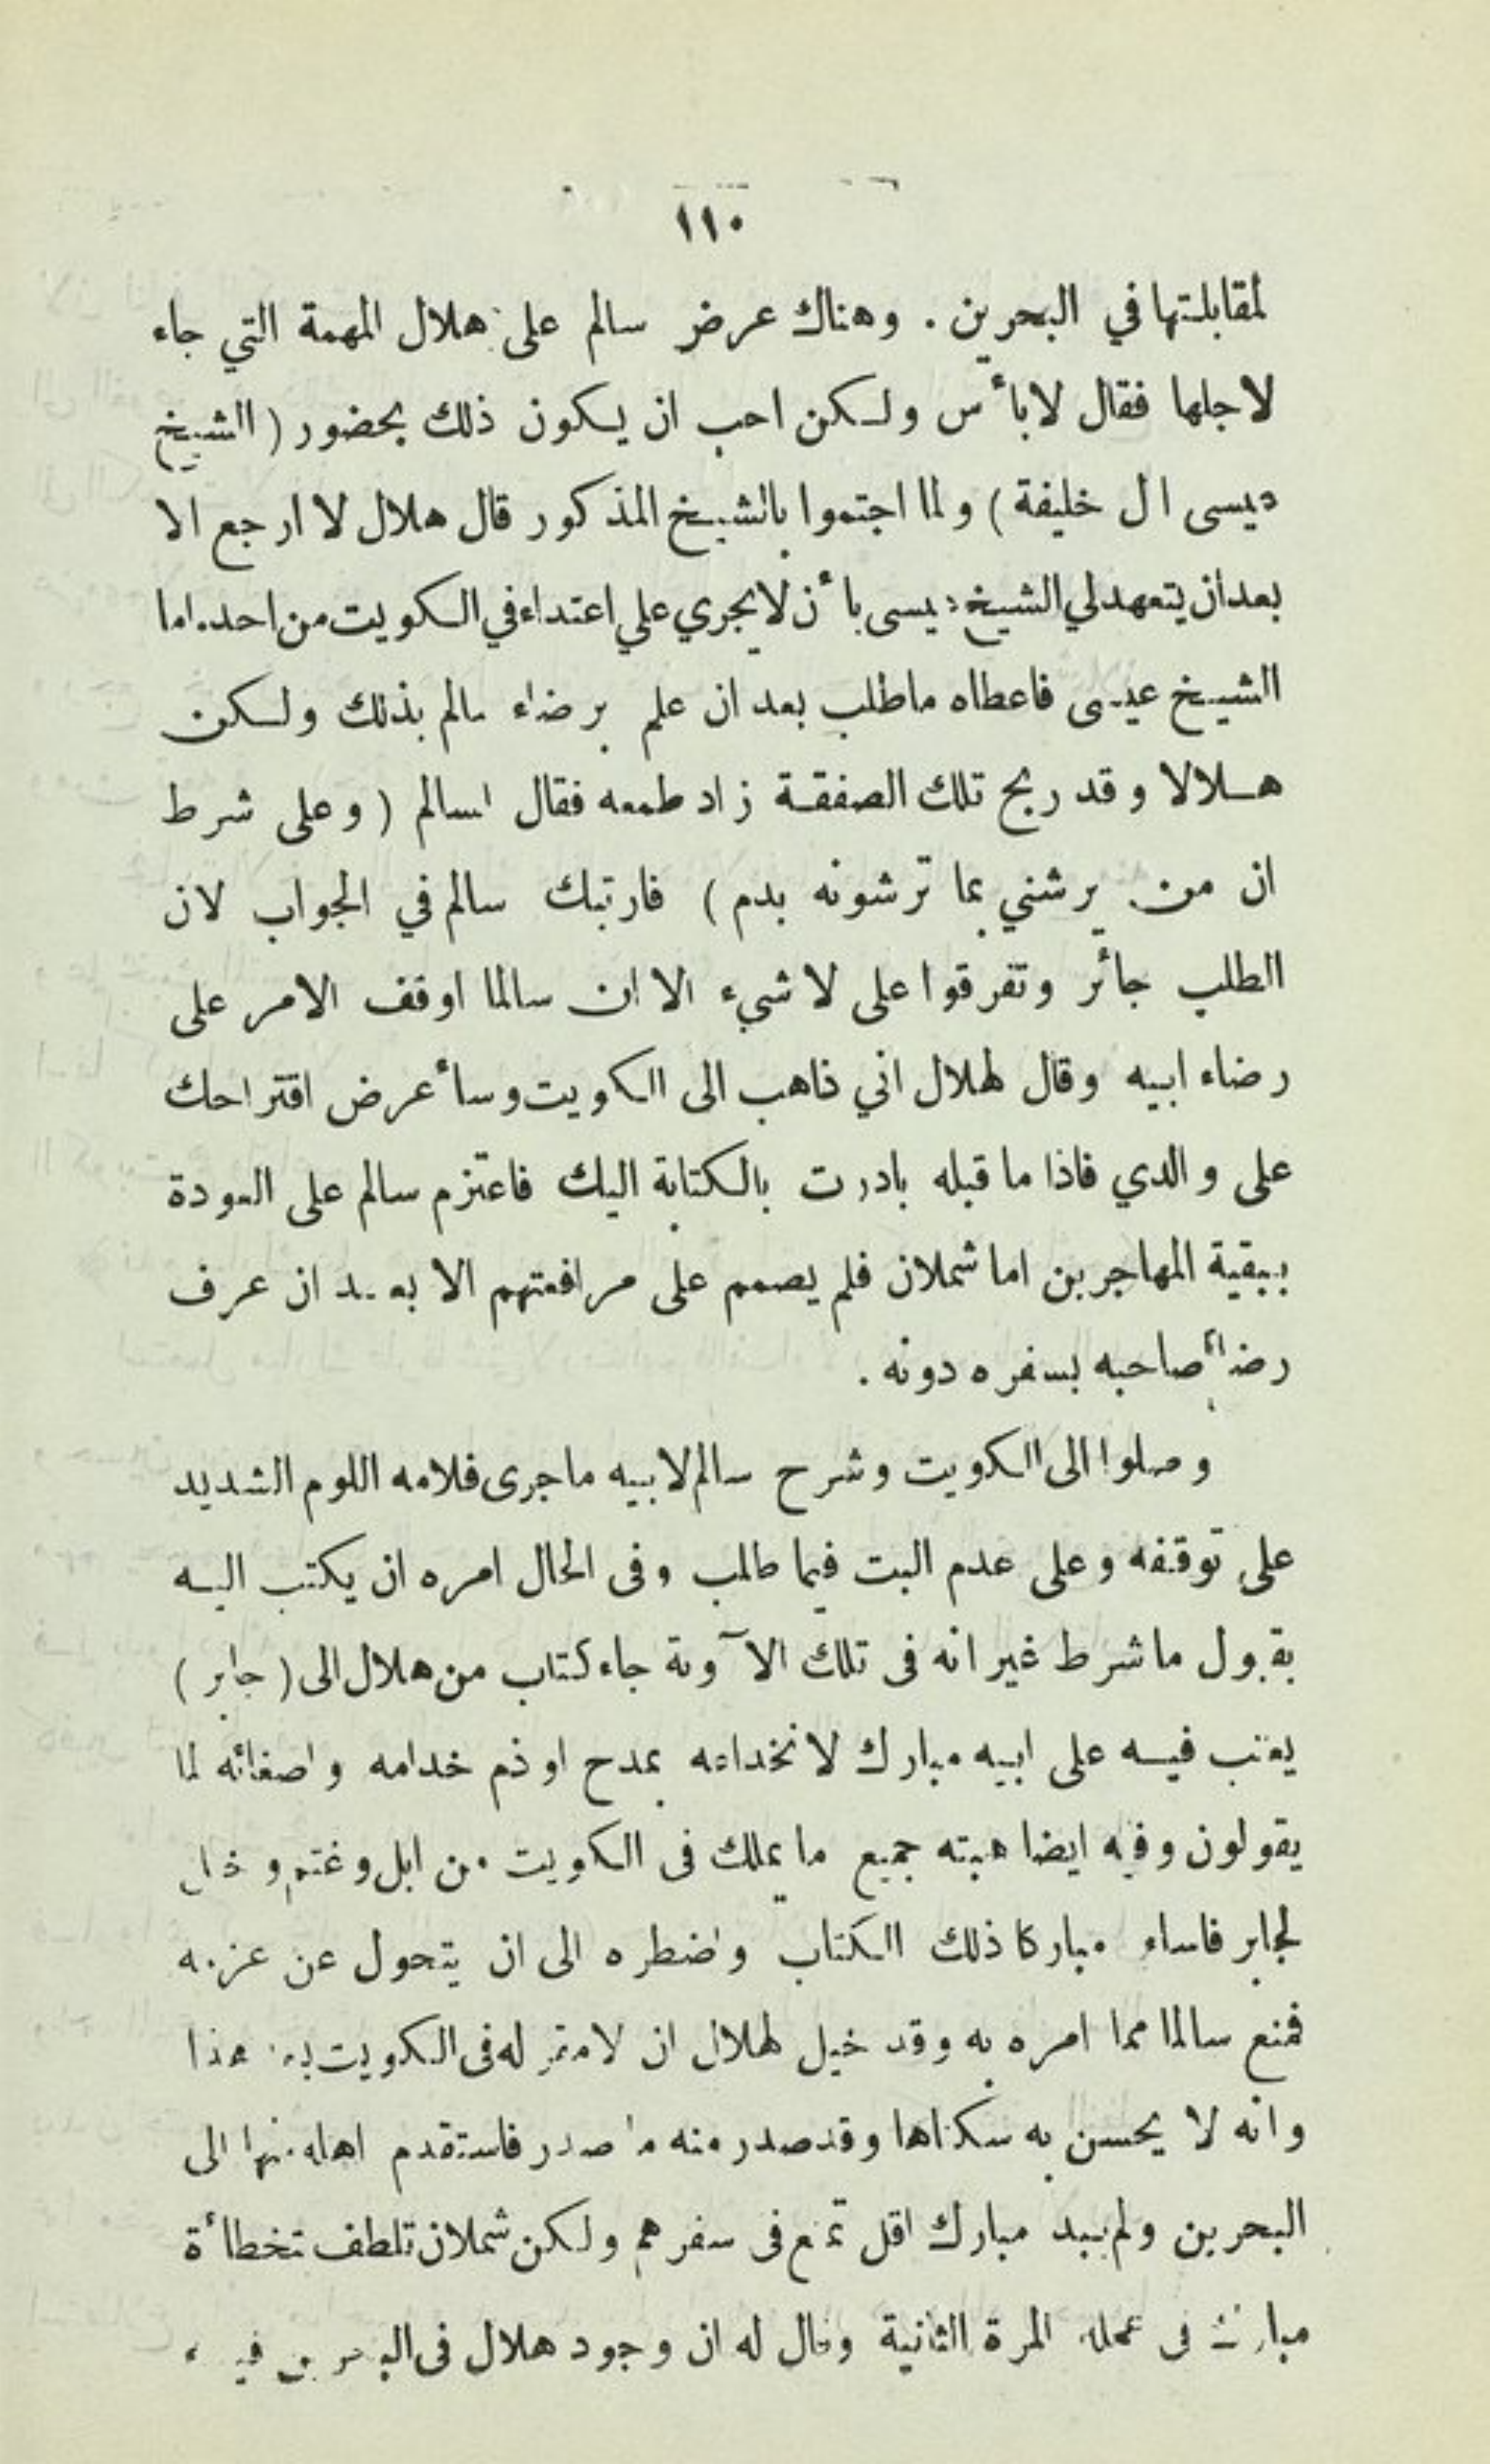 ١١٠
لمقابلتها في البحرين . وهناك عرض سالم على هلال المهمة التي جاء
لاجلها فقال لا بأس ولكن احب ان يكون ذلك بحضور ( الشيخ
عيسى ال خليفة ) ولما اجتموا بالشيخ المذكور قال هلال لا ارجع الا
بعد ان يتعهد لي الشيخ عيسى بأن لا يجري علي اعتداء في الكويت من احد. اما
الشيخ عيسى فاعطاه ما طلب بعد ان علم برضاء سالم بذلك ولكن
هلالا وقد ربح تلك الصفقة زاد طمعه فقال لسالم ( وعلى شرط
ان من يرشني بما ترشونه بدم ) فارتبك سالم في الجواب لان
الطلب جائر وتفرقوا على لا شيء الا ان سالما اوقف الامر على
رضاء ابيه وقال لهلال اني ذاهب الى الكويت وسأعرض اقتراحك
على والدي فاذا ما قبله بادرت بالكتابة اليك فاعتزم سالم على العودة
ببقية المهاجرين اما شملان فلم يصمم على مرافقتهم الا بعد ان عرف
رضاء صاحبه بسفره دونه .
وصلوا الى الكويت وشرح سالم لابيه ما جرى فلامه اللوم الشديد
على توقفه وعلى عدم البت فيما طلب وفى الحال امره ان يكتب اليه
بقبول ما شرط غير انه فى تلك الآونة جاء كتاب من هلال الى ( جابر )
يعتب فيه على ابيه مبارك لانخداعه بمدح او ذم خدامه واصغائه لما
يقولون وفيه ايضا هبته جميع ما يملك فى الكويت من ابل وغنم و
لجابر فاساء مباركا ذلك الكتاب واضطره الى ان يتحول عن عزمه
فمنع سالما مما امره به وقد خيل لهلال ان لا مقر له فى الكويت بعد هذا
وانه لا يحسن به سكناها وقد صدر منه ما صدر فاستقدم اهله منها الى
البحرين ولم يبد مبارك اقل تمنع فى سفرهم ولكن شملان تلطف تخطأة
مبارك فى عمله المرة الثانية وقال له ان وجود هلال فى البحرين فيه